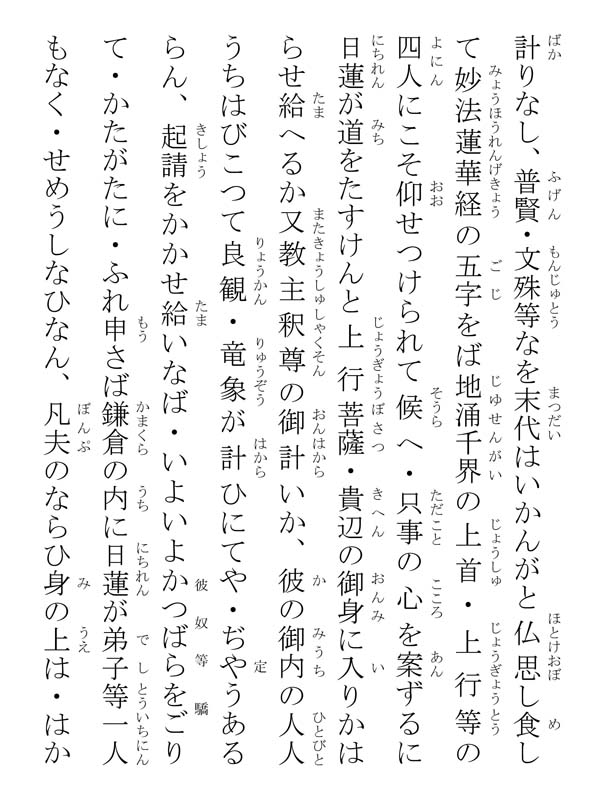 計りなし、普賢・文殊等なを末代はいかんがと仏思し食し
て妙法蓮華経の五字をば地涌千界の上首・上行等の
四人にこそ仰せつけられて候へ・只事の心を案ずるに
日蓮が道をたすけんと上行菩薩・貴辺の御身に入りかは
らせ給へるか又教主釈尊の御計いか、彼の御内の人人
うちはびこつて良観・竜象が計ひにてや・ぢやうある
らん、起請をかかせ給いなば・いよいよかつばらをごり
て・かたがたに・ふれ申さば鎌倉の内に日蓮が弟子等一人
もなく・せめうしなひなん、凡夫のならひ身の上は・はか